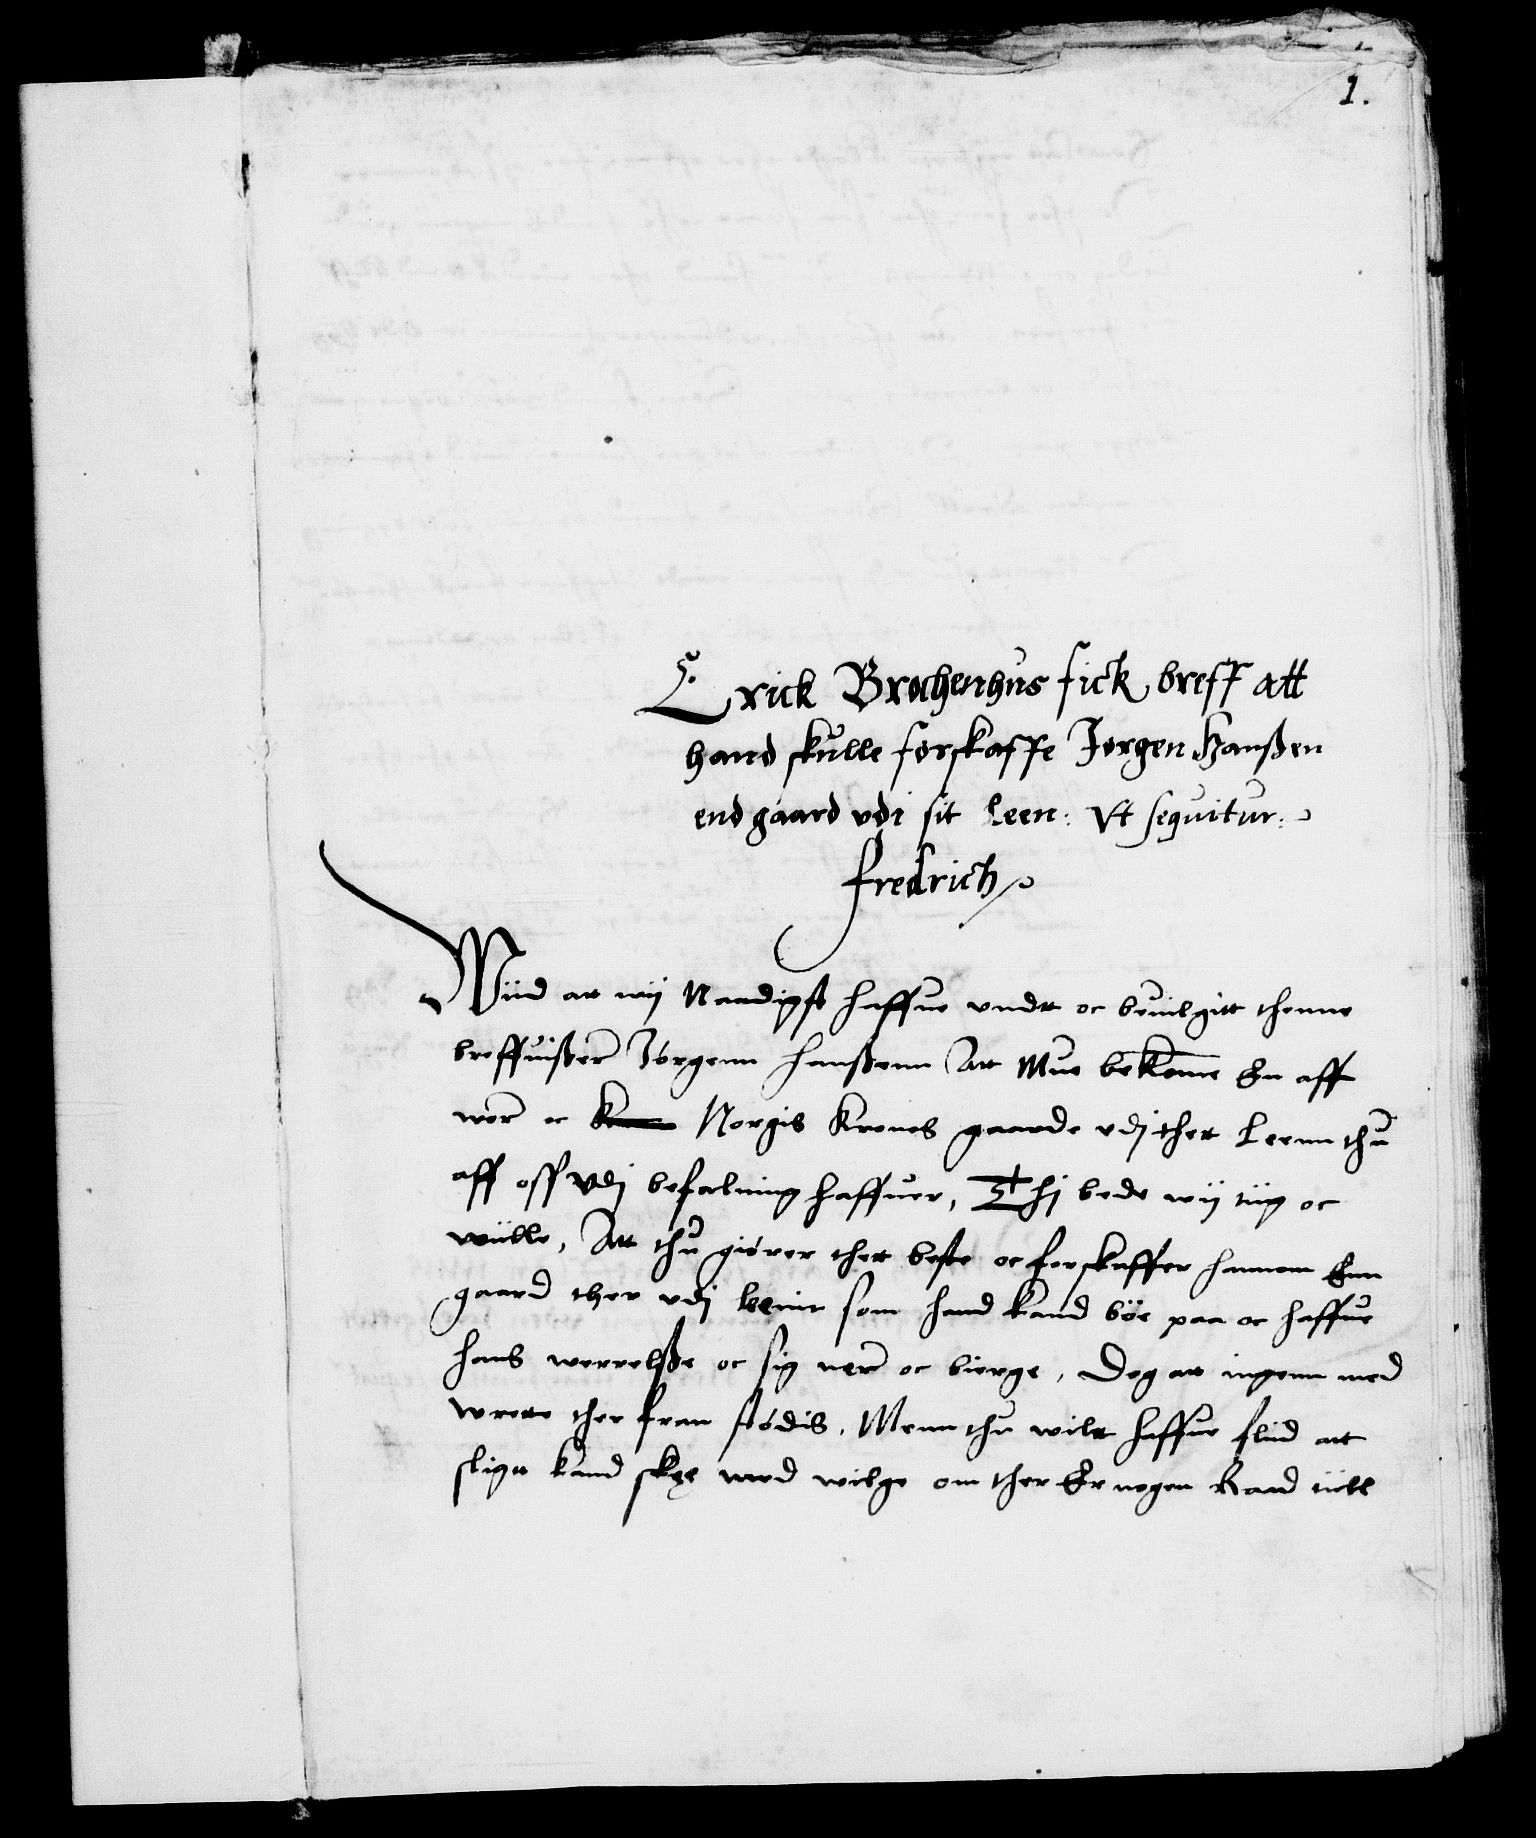 1.
Erick Brochenhus fick breff att
hand skulle forskaffe Jørgen Hanßen
end gaard vdi sit Leen: Vt sequitur:
fredrich
Wiid att wij Naadigst haffue vndt oc beuilgitt thenne
breffuißer Jørgenn Hanßenn Att Mue bekome En aff
wor oc Norgis Krones gaarde vdj thet Leenn thu
aff oss vdj befalning haffuer, Thj bede wij tiig oc
wiille, Att thu giører thet beste oc forskaffer hannom Enn
gaard ther vdj leenit som hand kand böe paa oc haffue
hans werrelße oc sig nere oc bierge, Dog att ingenn med
wrette ther fran stødis, Menn thu wilt haffue fliid att
sligtt kand skee med wilge om ther Er nogen Raad tiill